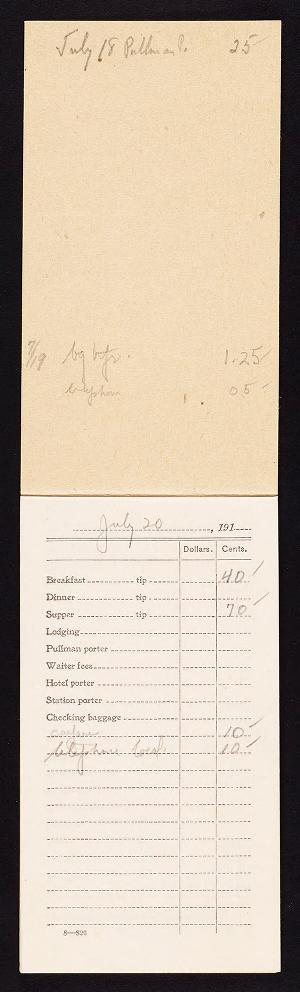 July 18 Pullman P. 25
7/19 bg tfr. 1.25
telephone 05
July 20, 191
Dollars. Cents.
Breakfast tip 40
Dinner tip
Supper tip 70
Lodging
Pullman porter
Waiter fees
Hotel porter
Station porter
Checking baggage
carfare 10
telephone local 10
8—820